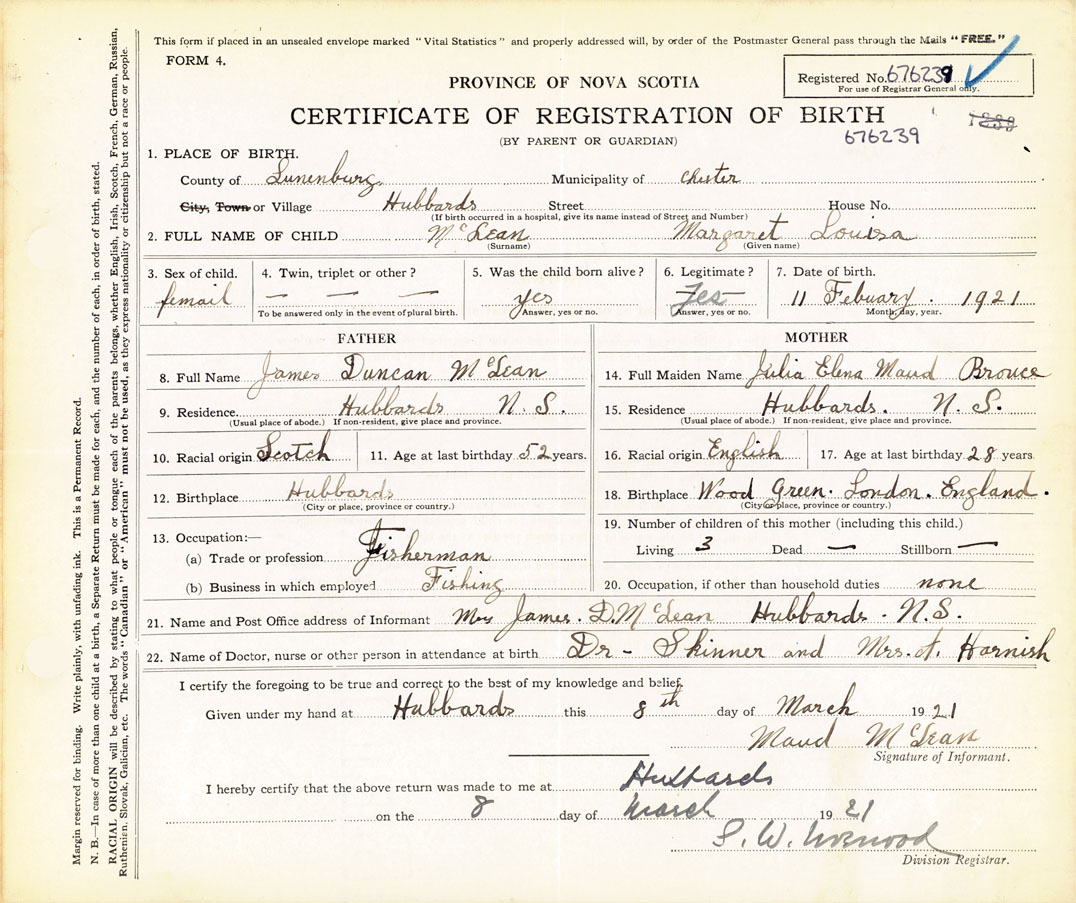 This form if placed in an unsealed envelope marked "Vital Statistics" and properly addressed will, by order of the Postmaster General pass through the Mails "FREE."
FORM 4.
Registered No. 676239
For use of Registrar General only.
PROVINCE OF NOVA SCOTIA
CERTIFICATE OF REGISTRATION OF BIRTH
(BY PARENT OR GUARDIAN)
676239
1. PLACE OF BIRTH.
County of Lunenburg Municipality of Chester
City, Town or Village Hubbards Street House No.
(If birth occurred in a hospital, give its name instead of Street and Number)
2. FULL NAME OF CHILD McLean Margaret Louisa
(Surname) (Given name)
3. Sex of child. 4. Twin, triplet or other? 5. Was the child born alive? 6. Legitimate? 7. Date of birth.
femail — — — yes Yes 11 Febuary. 1921
To be answered only in the event of plural birth. Answer, yes or no. Answer, yes or no. Month, day, year.
FATHER
8. Full Name James Duncan McLean
9. Residence. Hubbards N.S.
(Usual place of abode.) If non-resident, give place and province.
10. Racial origin Scotch 11. Age at last birthday 52 years.
12. Birthplace Hubbards
(City or place, province or country.)
13. Occupation:—
(a) Trade or profession Fisherman
(b) Business in which employed Fishing
MOTHER
14. Full Maiden Name Julia Elena Maud Brouce
15. Residence Hubbards. N.S.
(Usual place of abode.) If non-resident, give place and province.
16. Racial origin English 17. Age at last birthday 28 years
18. Birthplace Wood Green. London. England.
(City or place, province or country.)
19. Number of children of this mother (including this child.)
Living 3 Dead — Stillborn —
20. Occupation, if other than household duties none
21. Name and Post Office address of Informant Mrs James. D. McLean Hubbards. N.S.
22. Name of Doctor, nurse or other person in attendance at birth Dr - Skinner and Mrs. A. Harnish
I certify the foregoing to be true and correct to the best of my knowledge and belief.
Given under my hand at Hubbards this 8th day of March 1921
Maud McLean
Signature of Informant.
I hereby certify that the above return was made to me at Hubbards
on the 8 day of March 1921
S. W. Norwood
Division Registrar.
Margin reserved for binding. Write plainly, with unfading ink. This is a Permanent Record.
N. B.—In case of more than one child at a birth, a Separate Return must be made for each, and the number of each, in order of birth, stated.
RACIAL ORIGIN will be described by stating to what people or tongue each of the parents belongs, whether English, Irish, Scotch, French, German, Russian,
Ruthenian, Slovak, Galician, etc. The words "Canadian" or "American" must not be used, as they express nationality or citizenship but not a race or people.